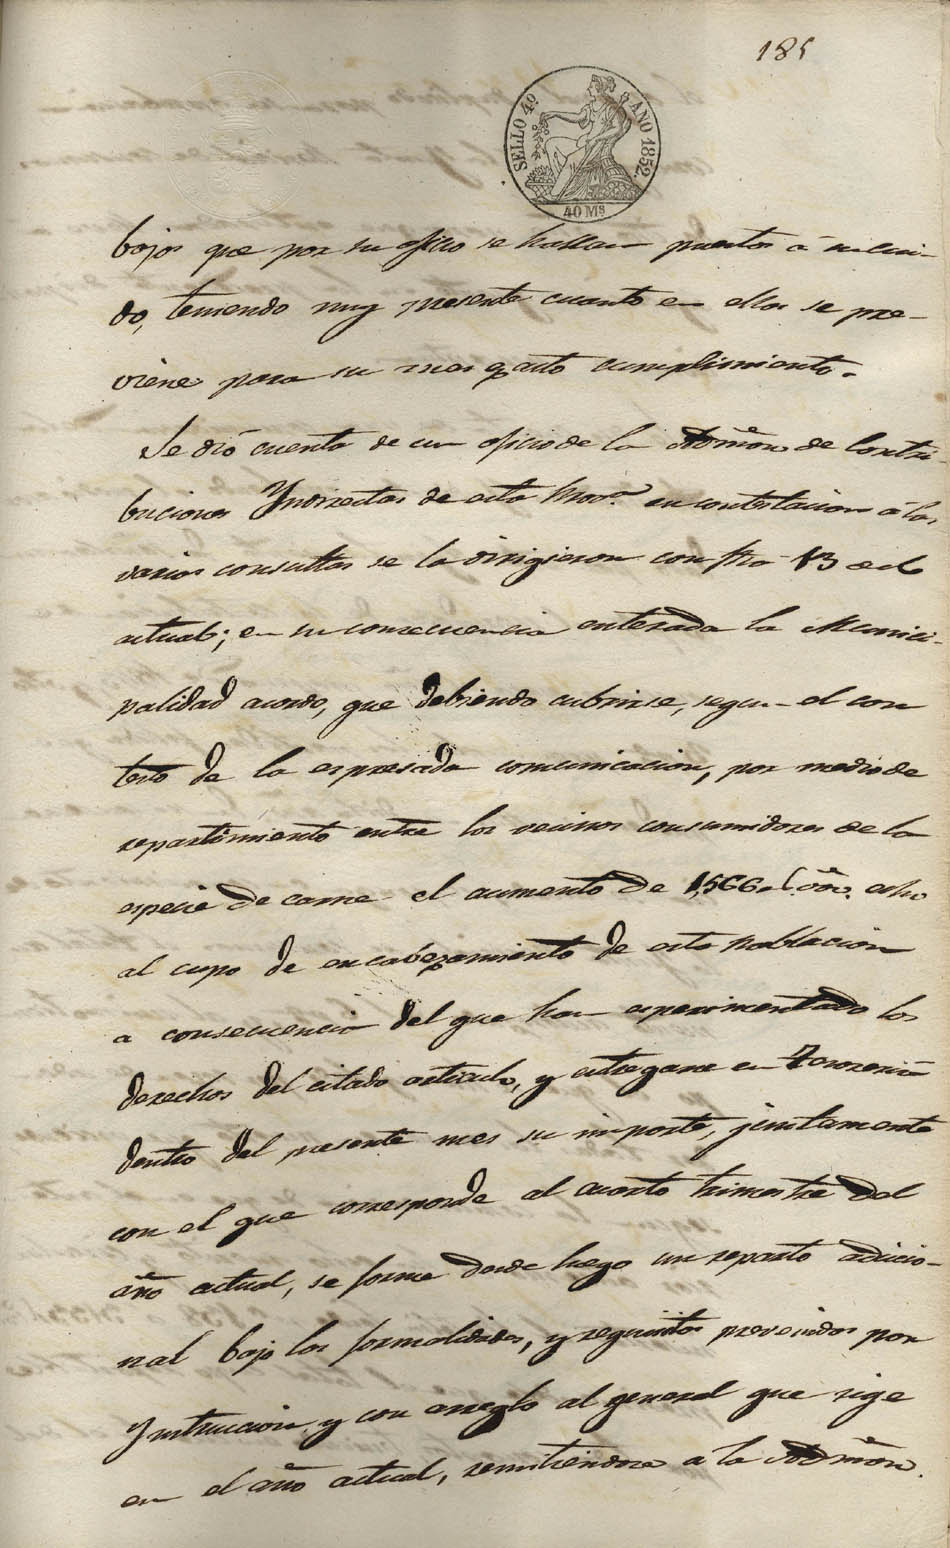 185
SELLO 4º AÑO 1852.
40 Mˢ
bajos que por su oficio se hallan puestos á su cui-
do, teniendo muy presente cuanto en ellos se pre-
viene para su mas exacto cumplimiento.
Se dió cuenta de un oficio de la Admōn de Contri-
buciones Yndirectas de esta en contestacion á las
varias consultas se la dirigieron con fha 13 del
actual; en su consecuencia enterada la Munici-
palidad acordo, que debiendo cubrirse, segun el con
testo de la espresada comunicacion, por medio de
repartimiento entre los vecinos consumidores de la
especie de carne el aumento de 1,566
al cupo de encabezamiento de esta Poblacion
a consecuencia del que han esperimentado los
derechos del citado articulo, y entregarse en Tesoreria
dentro del presente mes su importe, juntamente
con el que corresponde al cuarto trimestre del
año actual, se forme desde luego un reparto adicio-
nal bajo las formalidades, y requisitos prevenidos por
Ynstruccion y con arreglo al general que rige
en el año actual, remitiendose a la Admōn.